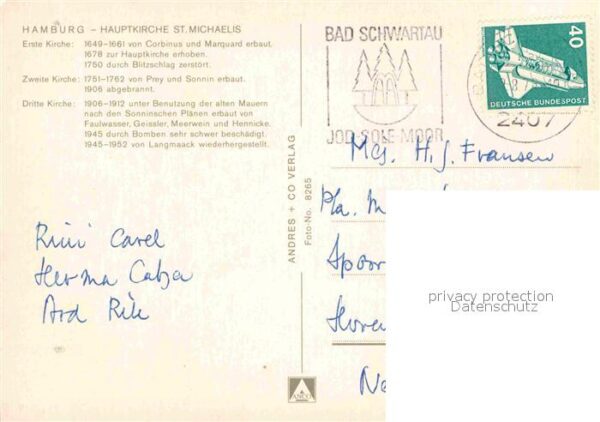 HAMBURG – HAUPTKIRCHE ST. MICHAELIS
Erste Kirche: 1649–1661 von Corbinus und Marquard erbaut.
1678 zur Hauptkirche erhoben.
1750 durch Blitzschlag zerstört.
Zweite Kirche: 1751–1762 von Prey und Sonnin erbaut.
1906 abgebrannt.
Dritte Kirche: 1906–1912 unter Benutzung der alten Mauern
nach den Sonninschen Plänen erbaut von
Faulwasser, Geissler, Meerwein und Hennicke.
1945 durch Bomben sehr schwer beschädigt.
1945–1952 von Langmaack wiederhergestellt.
ANDRES + CO VERLAG
Foto-No. 8265
BAD SCHWARTAU
JOD-SOLE-MOOR
40
DEUTSCHE BUNDESPOST
2407
H. J. Fransen
Pla. M
Spoor
Rini Carel
Herma
ANCO
privacy protection
Datenschutz